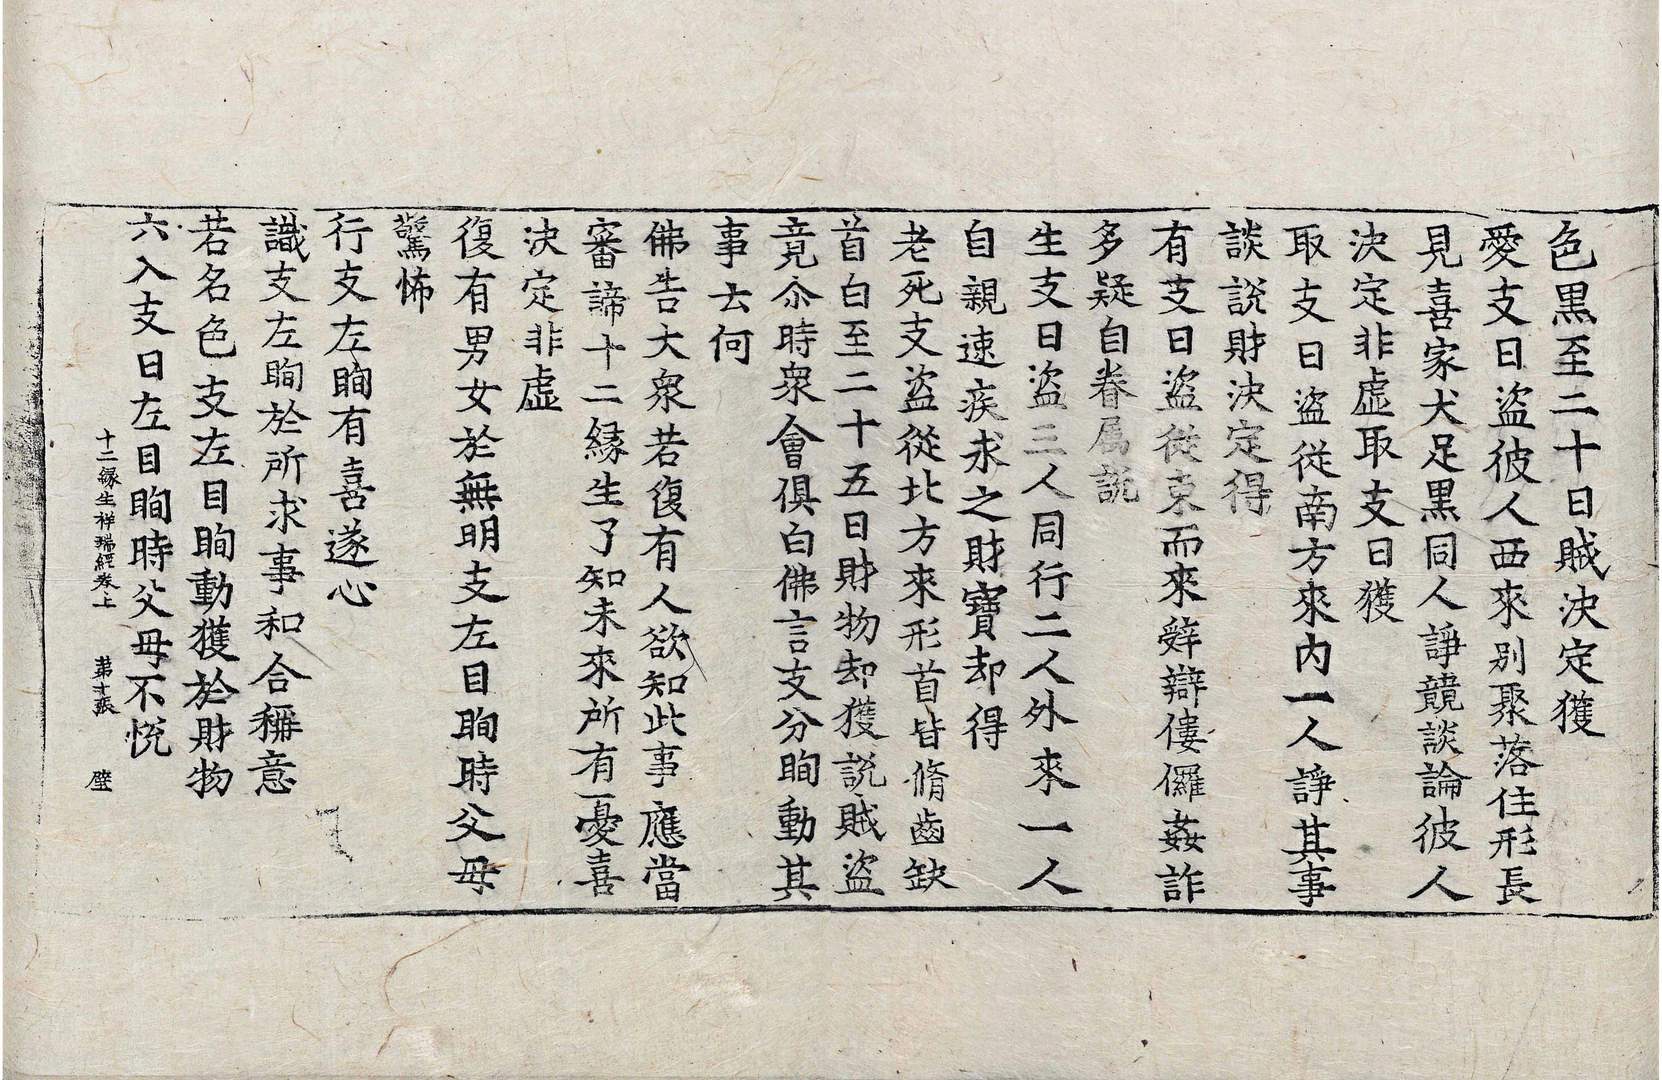 色黑至二十日賊決定獲
愛支日盜彼人西來別聚落住形長
見喜家犬足黑同人諍競談論彼人
決定非虛取支日獲
取支日盜從南方來內一人諍其事
談說財決定得
有支日盜從東而來辤辯僂儸姦詐
多疑自眷屬說
生支日盜三人同行二人外來一人
自親速疾求之財寶却得
老死支盜從北方來形首皆脩齒缺
首白至二十五日財物却獲説賊盜
竟尒時衆會俱白佛言支分眴動其
事云何
佛告大衆若復有人欲知此事應當
審諦十二緣生了知未來所有憂喜
決定非虛
復有男女於無明支左目眴時父母
驚怖
行支左眴有喜遂心
識支左眴於所求事和合稱意
若名色支左目眴動獲於財物
六入支日左目眴時父母不悅
十二緣生祥瑞經卷上 第十張 璧